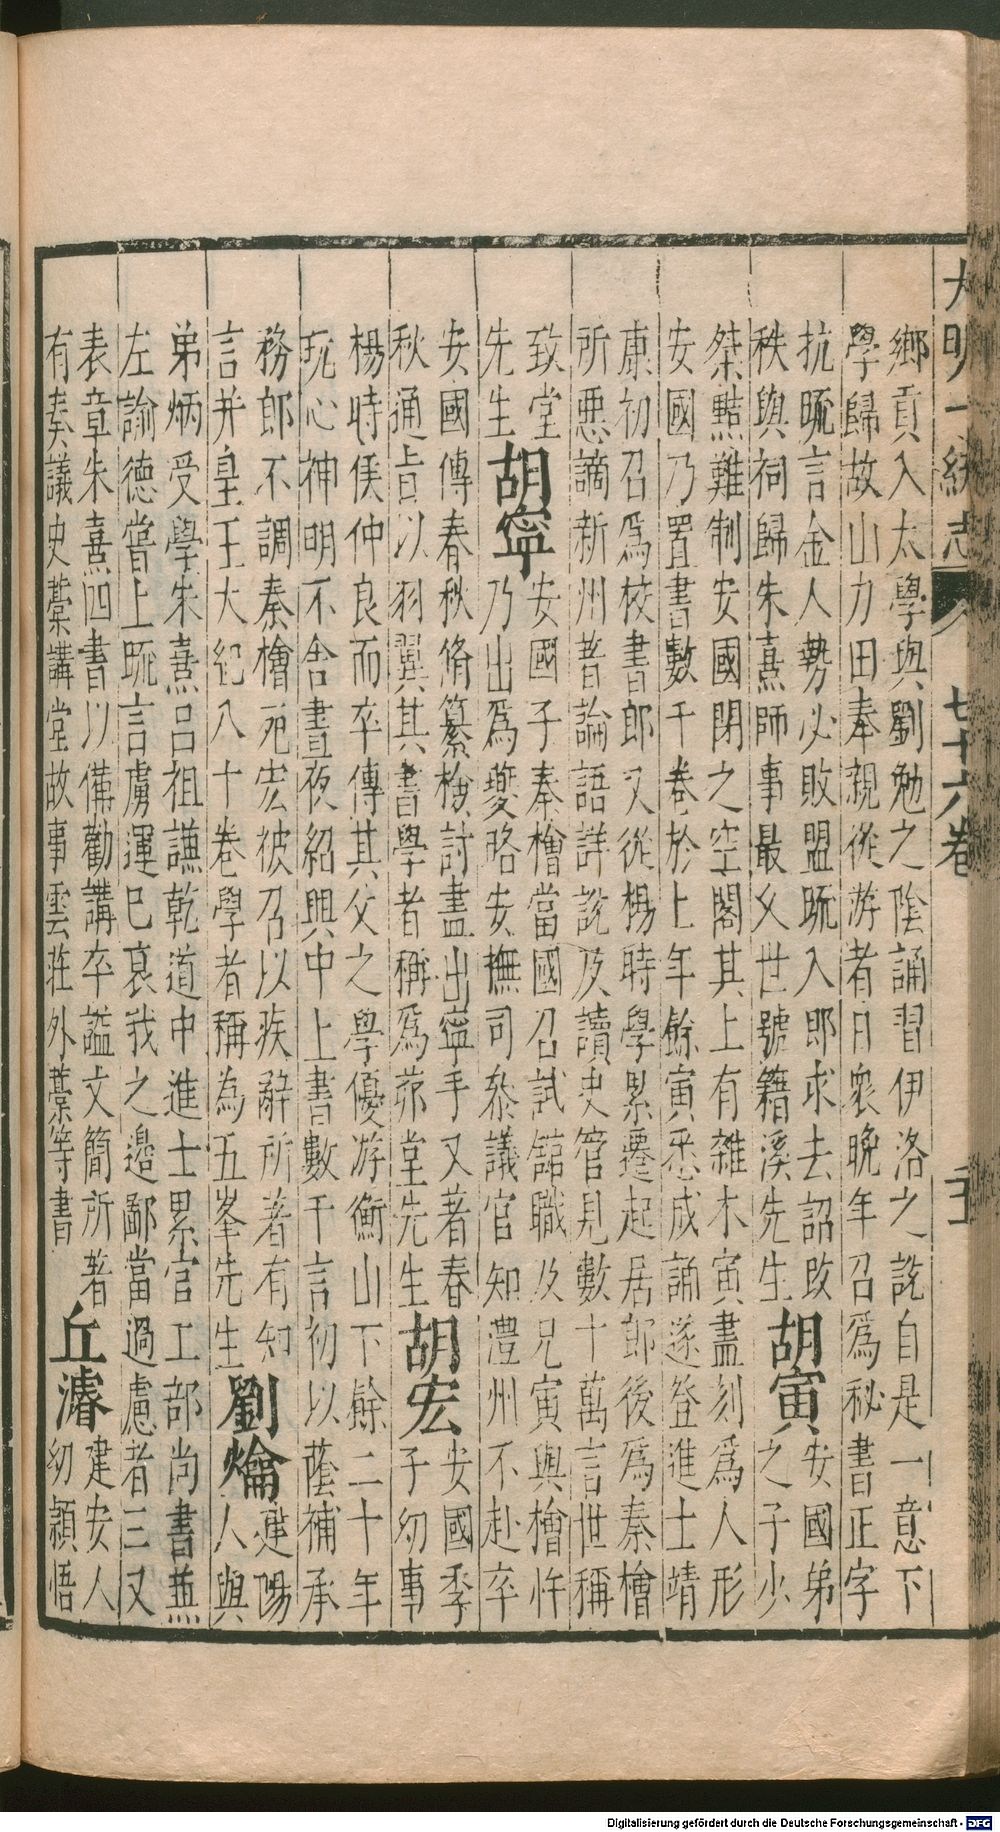 大明一統志 七十六卷
鄉貢入太學與劉勉之陰誦習伊洛之說自是一意下
學歸故山力田奉親從游者日衆晚年召爲秘書正字
抗疏言金人勢必敗盟疏入即求去詔改
秩與祠歸朱熹師事最久世號籍溪先生
胡寅
安國弟
之子少
桀黠難制安國閉之空閣其上有雜木寅盡刻爲人形
安國乃置書數千卷於上年餘寅悉成誦遂登進士靖
康初召爲校書郎又從楊時學累遷起居郎後爲秦檜
所惡謫新州著論語詳說及讀史管見數十萬言世稱
致堂
先生
胡寧
安國子秦檜當國召試館職及兄寅與檜忤
乃出爲夔略安撫司叅議官知澧州不赴卒
安國傳春秋脩纂檢討盡出寧手又著春
秋通旨以羽翼其書學者稱爲茆堂先生
胡宏
安國季
子幼事
楊時侯仲良而卒傳其父之學優游衡山下餘二十年
玩心神明不舍晝夜紹興中上書數千言初以蔭補承
務郎不調秦檜死宏被召以疾辭所著有知
言并皇王大紀八十卷學者稱為五峯先生
劉爚
建陽
人與
弟炳受學朱熹呂祖謙乾道中進士累官工部尚書兼
左諭德嘗上疏言虜運已衰我之邊鄙當過慮者三又
表章朱熹四書以備勸講卒謚文簡所著
有奏議史藳講堂故事雲莊外藳等書
丘濬
建安人
幼穎悟
Digitalisierung gefördert durch die Deutsche Forschungsgemeinschaft - DFG